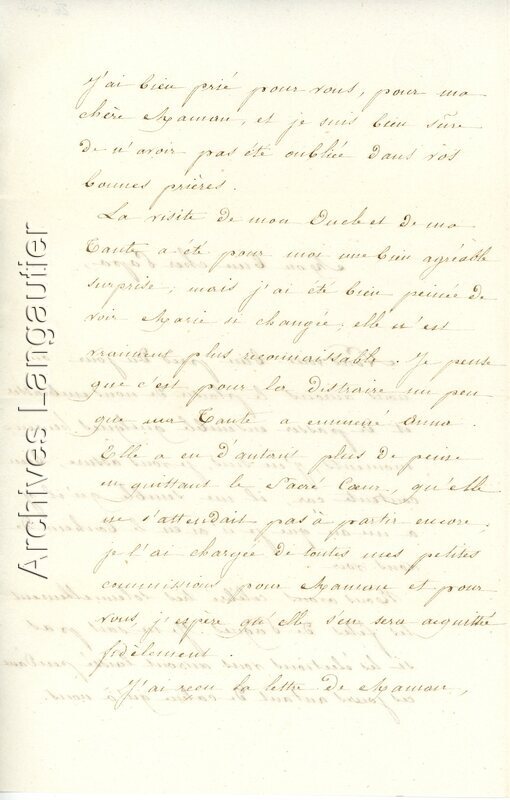 J'ai bien prié pour vous, pour ma
chère Maman, et je suis bien sûre
de n'avoir pas été oubliée dans vos
bonnes prières.
La visite de mon Oncle et de ma
Tante a été pour moi une bien agréable
surprise; mais j'ai été bien peinée de
voir Marie si changée, elle n'est
vraiment plus reconnaissable. Je pense
que c'est pour la distraire un peu
que ma Tante a emmené Anna.
Elle a eu d'autant plus de peine
en quittant le Sacré Cœur, qu'elle
ne s'attendait pas à partir encore,
je l'ai chargée de toutes mes petites
commission pour Maman et pour
vous, j'espère qu'elle s'en sera acquittée
fidèlement.
J'ai reçu la lettre de Maman,
Archives Langautier